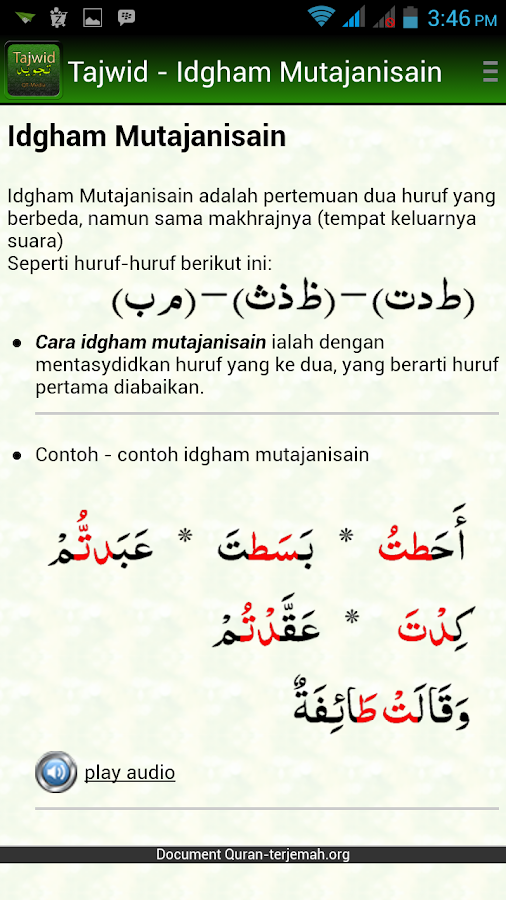 3:46 PM
Tajwid
تجويد
Tajwid - Idgham Mutajanisain
Idgham Mutajanisain
Idgham Mutajanisain adalah pertemuan dua huruf yang
berbeda, namun sama makhrajnya (tempat keluarnya
suara)
Seperti huruf-huruf berikut ini:
(ط د ت) – (ظ ذ ث) – (م ب)
Cara idgham mutajanisain ialah dengan
mentasydidkan huruf yang ke dua, yang berarti huruf
pertama diabaikan.
Contoh - contoh idgham mutajanisain
أَحَطتُ * بَسَطتَ * عَبَدتُّمْ
كِدْتَ * عَقَّدْتُمْ
وَقَالَتْ طَائِفَةٌ
play audio
Document Quran-terjemah.org